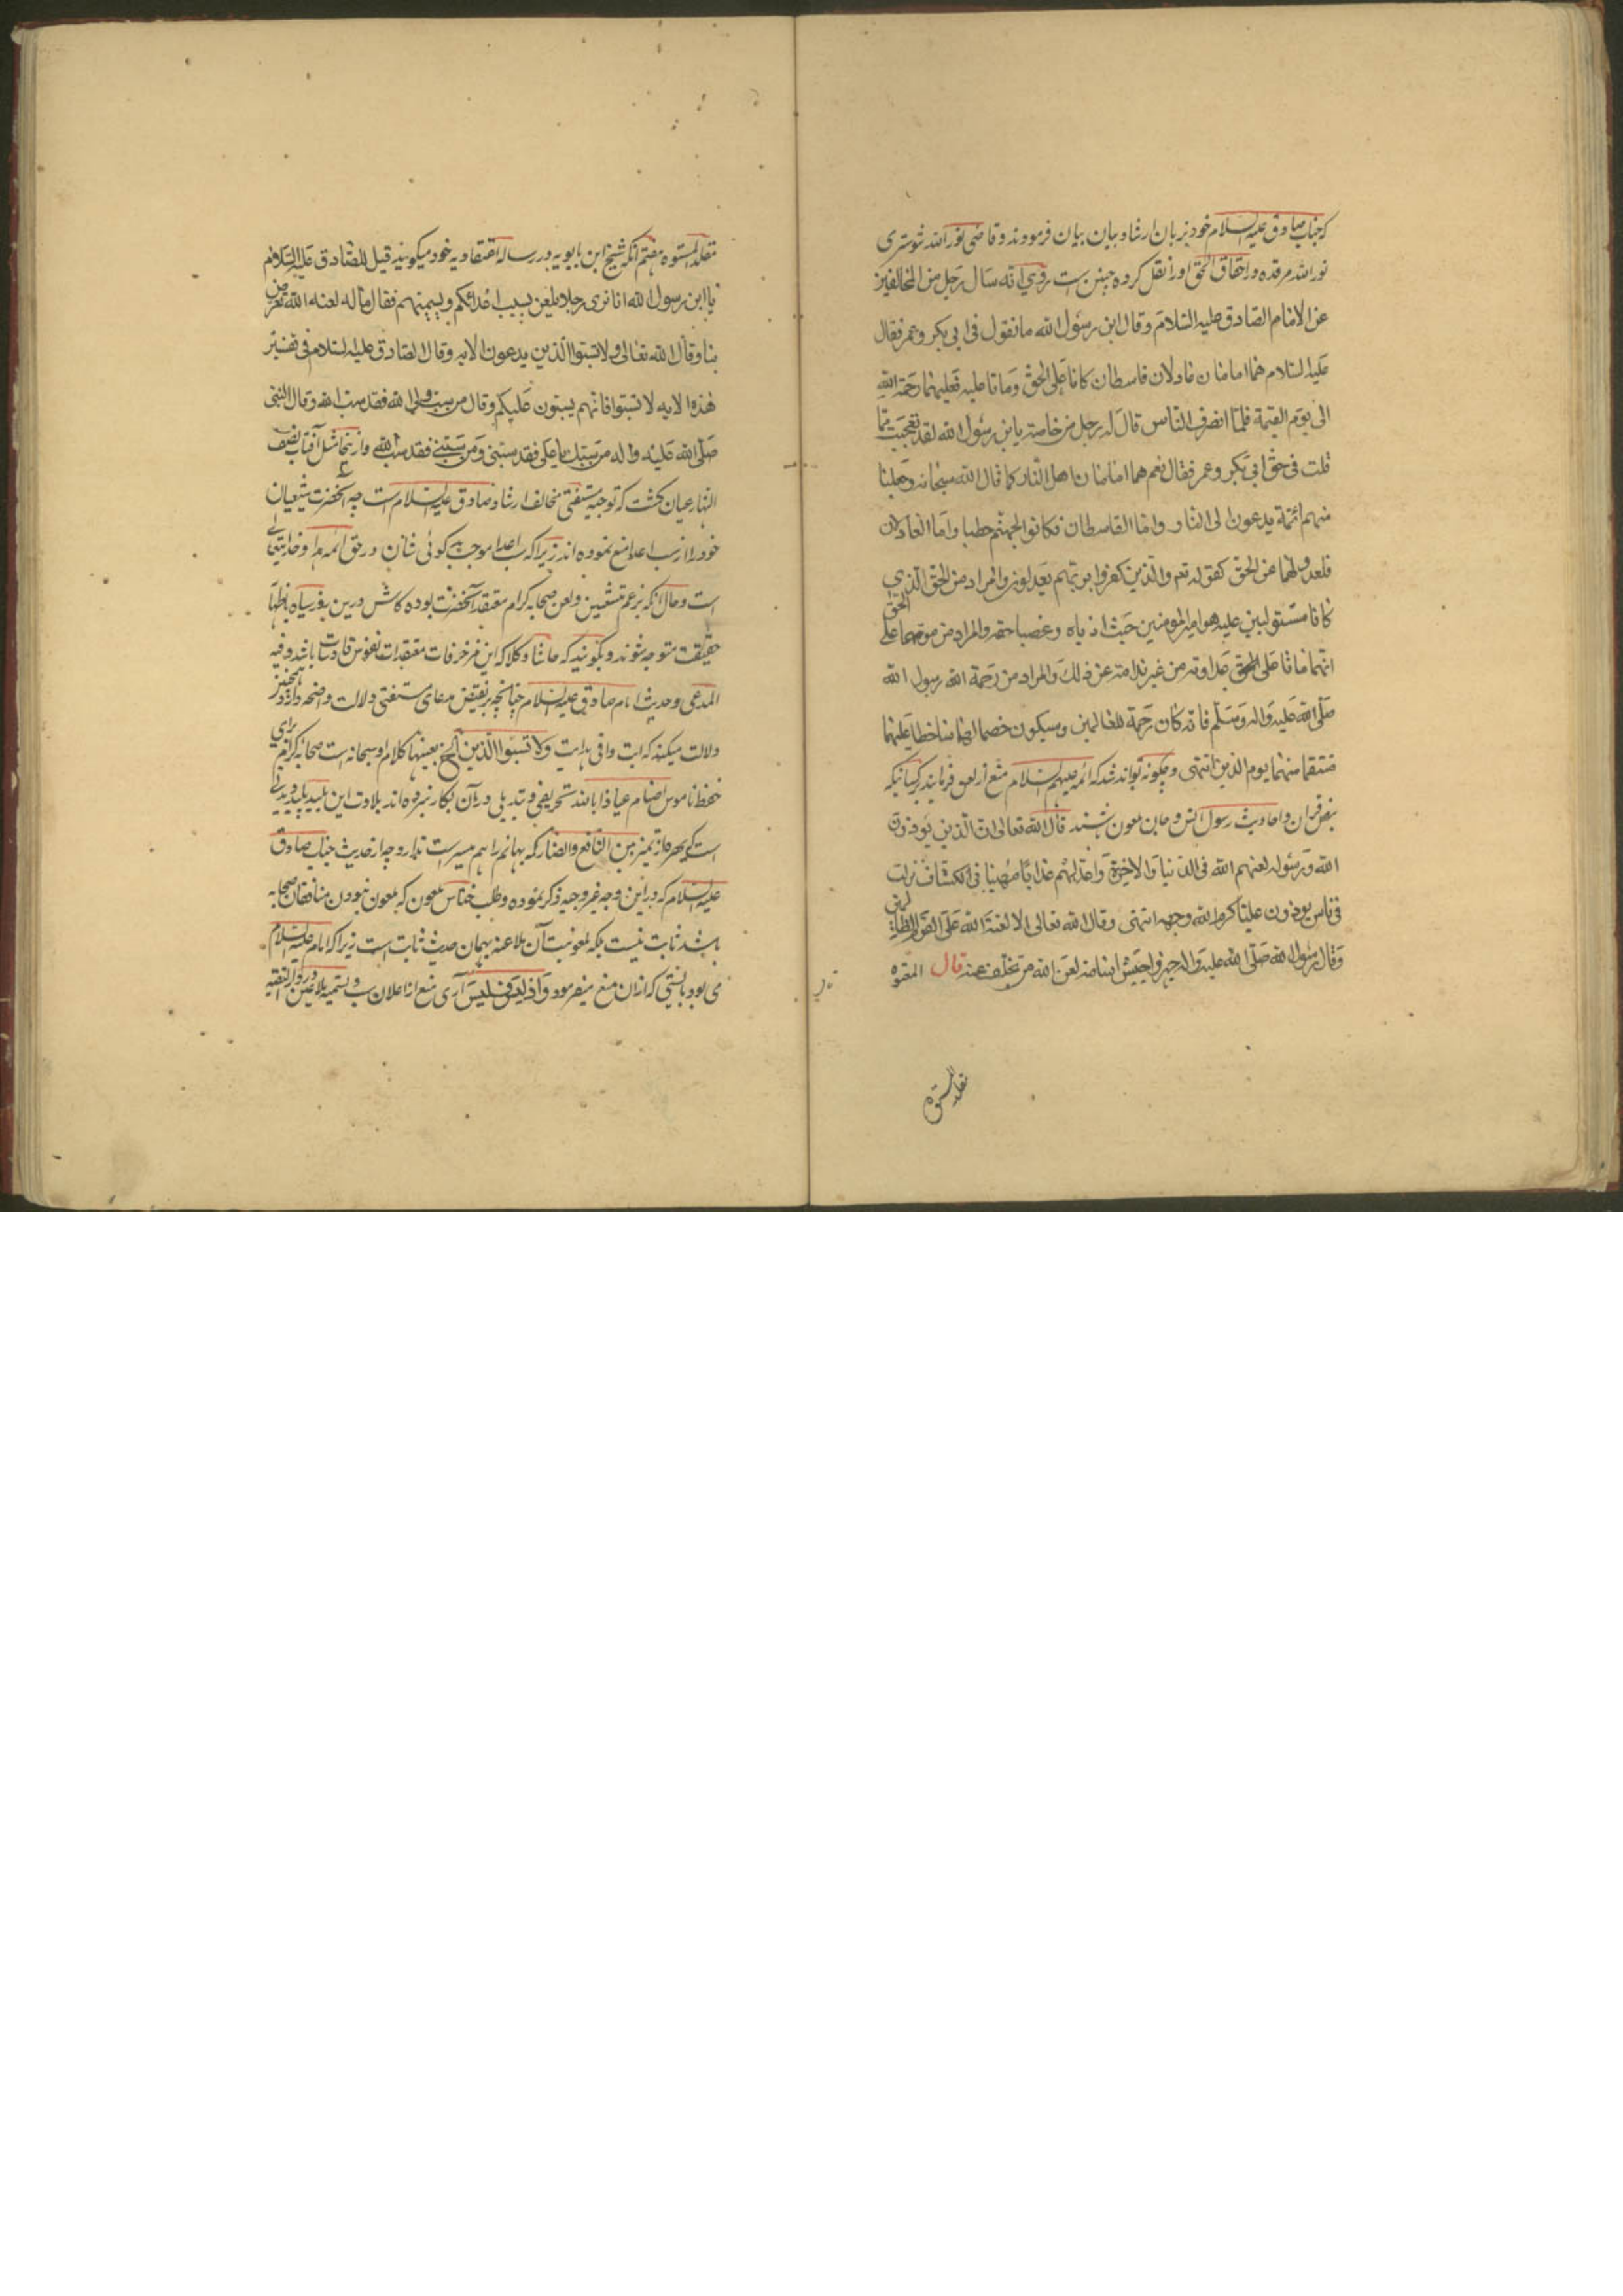 که جناب صادق علیه السلام خود بزبان ارشاد بیان بیان فرمودند و قاضی نور الله شوستری
نور الله مرقده در احقاق الحق اورا نقل کرده چنین است روی انه سال رجل من المخالفین
عن الامام الصادق علیه السلام وقال ابن رسول الله ما تقول فی ابی بکر وعمر فقال
علیه السلام هما امامان عادلان قاسطان کانا علی الحق وماتا علیه فعلیهما رحمة الله
الی یوم القیمة فلما انصرف الناس قال له رجل من خاصته یا بن رسول الله لقد تعجبت مما
قلت فی حق ابی بکر وعمر فقال نعم هما امامان اهل النار کما قال الله سبحانه وجعلنا
منهم ائمة یدعون الی النار واما القاسطان فکانوا لجهنم حطبا واما العادلان
فلعدولهما عن الحق کقوله تعم والذین کفروا بربهم یعدلون والمراد من الحق الذی
کانا مستولیین علیه هو امیر المومنین حیث اذیاه وغصبا حقه والمراد من موتهما علی الحق
انهما ماتا علی عداوته من غیر ندامة عن ذلک والمراد من رحمة الله رسول الله
صلی الله علیه واله وسلم فانه کان رحمة للعالمین وسیکون خصما لهما ساخطا علیهما
منتقما منهما یوم الدین انتهی و چکونه تواند شد که ائمه علیهم السلام منع از لعن فرمایند بر کسانیکه
بنص قران و احادیث رسول انس و جان ملعون باشند قال الله تعالی ان الذین یؤذون
الله ورسوله لعنهم الله فی الدنیا والاخرة واعد لهم عذابا مهینا فی الکشاف نزلت
فی ناس یوذون علیا کرم الله وجهه انتهی وقال الله تعالی الا لعنة الله علی القوم الظالمین
وقال رسول الله صلی الله علیه واله جهزوا جیش اسامة لعن الله من تخلف عنه قال المعتوه
مقلد المشوه هفتم آنکه شیخ ابن بابویه در رساله اعتقادیه خود میکوید قیل للصادق علیه السلام
یا ابن رسول الله انا نری رجلا یلعن یسب اعدائکم ویسمیهم فقال ماله لعنه الله تعرض
بنا وقال الله تعالی ولا تسبوا الذین یدعون الایه وقال الصادق علیه السلام فی تفسیر
هذه الایه لا تسبوا فانهم یسبون علیکم وقال من سب ولی الله فقد سب الله وقال النبی
صلی الله علیه واله من سبک یا علی فقد سبنی ومن سبنی فقد سب الله و ازینجا مثل آفتاب نصف
النهار عیان کشت که توجیه مستفتی مخالف ارشاد صادق علیه السلام است چه آنحضرت شیعیان
خود را از سب اعدا منع نموده اند زیرا که سب اعدا موجب بد کوئی شان در حق ائمه هدا و خدایتعالی
است و حال انکه بزعم متشیعین ولعن صحابه کرام معتقد آنحضرت بوده کاش درین بغور سیاه باطنها
حقیقت متوجه شوند و بکویند که حاشا وکلا که این مزخرفات معتقدات نفوس قادسات باشد وفیه
المدعی و حدیث امام صادق علیه السلام چنانچه بر نقیض مدعای مستفتی دلالت واضحه دارد همچنین
دلالت میکند که ایت وافی هدایت ولا تسبوا الذین آلخ بعینها کلام او سبحانه است صحابه کرام برای
حفظ ناموس اصنام عیاذا بالله تحریفی و تبدیلی در آن بکار نبرده اند بلادت این بلید پلید
است که بهره از تمیز بین النافع والضار که بهائم را هم میسر است ندارد چه از حدیث جناب صادق
علیه السلام که در این وجه غیر وجیه ذکر نموده مطلب خناس ملعون که ملعون نبودن منافقان صحابه
باشد ثابت نیست بلکه ملعونیت آن ملاعنه بهمان حدیث ثابت است زیرا که امام علیه السلام
می بود بایستی که ازان منع میفرمود واذ لیس فلیس آری منع از اعلان سب و تسمیه ملاعین در دار التقیه
مقلد المشوه